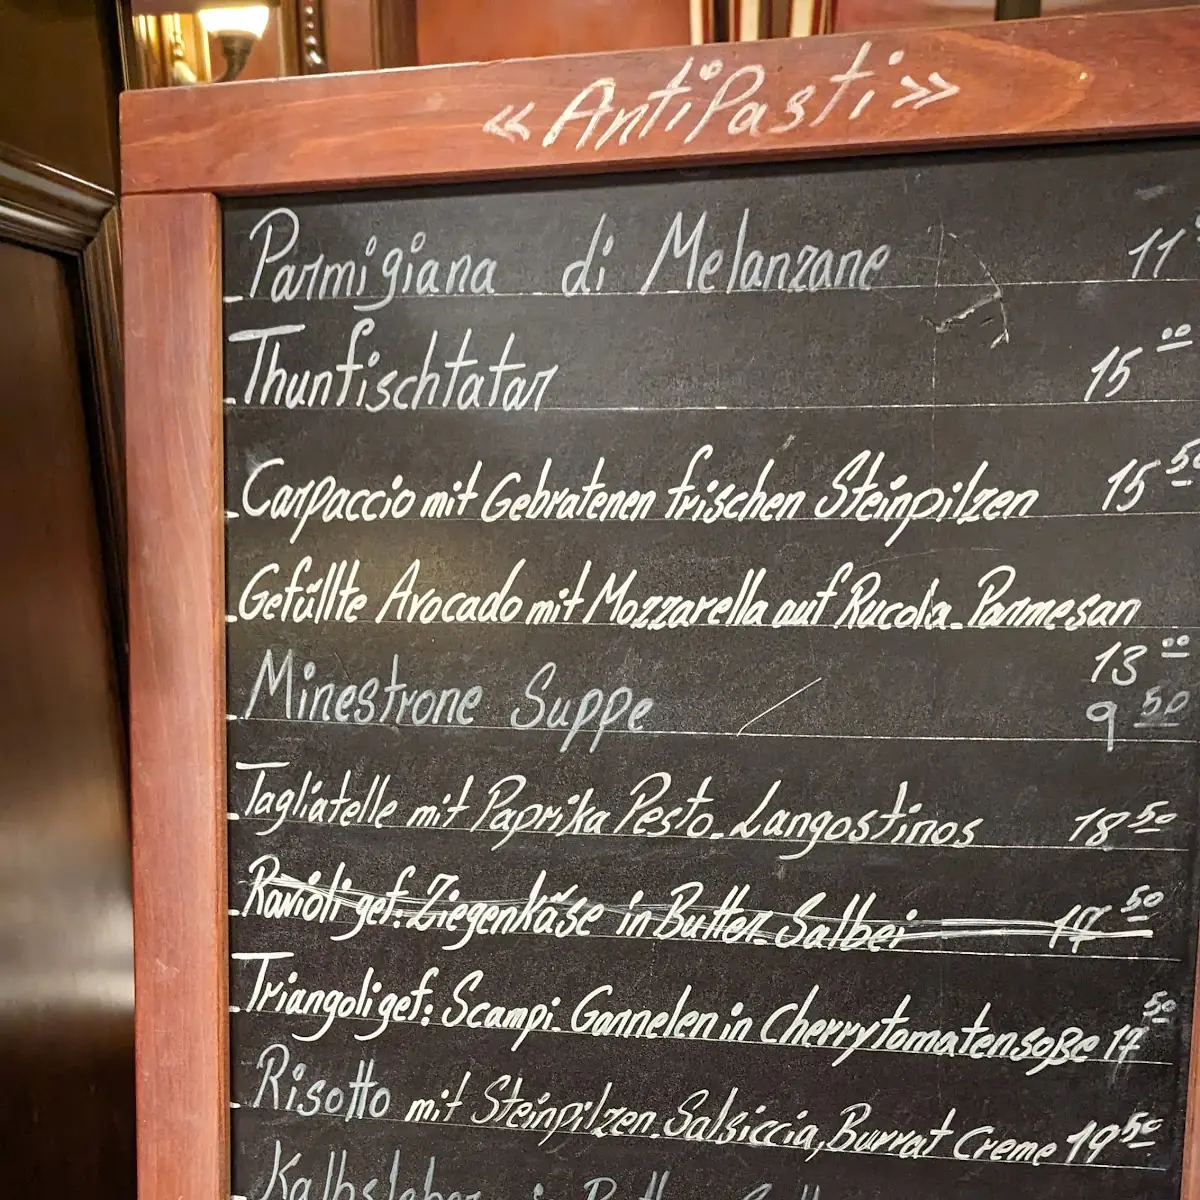 «AntiPasti»
Parmigiana di Melanzane 11
Thunfischtatar 15 00
Carpaccio mit Gebratenen frischen Steinpilzen 15 50
Gefüllte Avocado mit Mozzarella auf Rucola-Parmesan
13 00
Minestrone Suppe 9 50
Tagliatelle mit Paprika Pesto-Langostinos 18 50
Ravioli gef: Ziegenkäse in Butter-Salbei 17 50
Triangoli gef: Scampi-Garnelen in Cherrytomatensoße 17 50
Risotto mit Steinpilzen-Salsiccia, Burrat Creme 19 50
Kalbsleber in